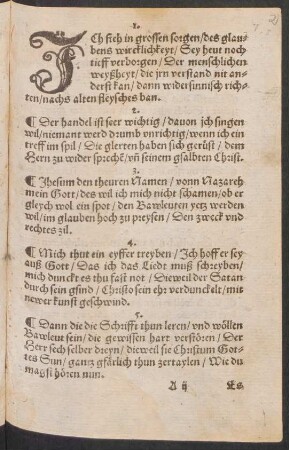 1.
ICh sieh in grossen sorgen/des glau-
bens wircklichkeyt/Sey heut noch
tieff verborgen/Der menschlichen
weyßheyt/die jrn verstand nit an-
derst kan/dann widersinnisch rich-
ten/nachs alten fleysches ban.
2.
¶ Der handel ist seer wichtig/dauon jch singen
wil/niemant werd drumb vnrichtig/wenn ich ein
treff im spil/Die glerten haben sich gerüst/dem
Hern zu wider sprechẽ/vñ seinem gsalbten Christ.
3.
¶ Jhesum den theuren Namen/vonn Nazareh
mein Gott/des wil ich mich nicht schamen/ob er
gleych wol ein spot/den Bawleuten yetz werden
wil/im glauben hoch zu preysen/Den zweck vnd
rechtes zil.
4.
¶ Mich thut ein eyffer treyben/Ich hoff er sey
auß Gott/Das ich das Liedt muß schreyben/
mich dunckt es thu fast not/Dieweil der Satan
durch sein gsind/Christo sein ehr verdunckelt/mit
newer kunst geschwind.
5.
¶ Dann die die Schrifft thun leren/vnd wöllen
Bawleut sein/die gewissen hart verstören/Der
Herr sech selber dreyn/dieweil sie Christum Got-
tes Sun/gantz gfärlich thun zertaylen/Wie du
magst hören nun.
A ij
Es